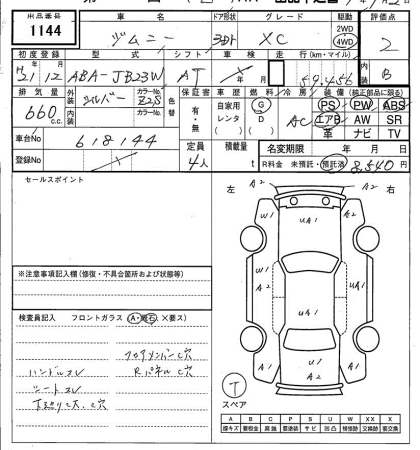 出品番号 車名 ドア形状 グレード 駆動 評価点
1144 ジムニー 3Dr XC 2WD 4WD 2
初度登録 型式 シフト 車検 走行(km・マイル) 内装
21年12月 ABA-JB23W AT 年 月 59,456 B
排気量 外装 カラーNo. 色替 保証書 車歴 燃料 冷房 装備(純正部品に限る)
660c.c. シルバー Z2S 有・無 自家用 G AC PS PW ABS
内装 カラーNo. レンタ D エアB AW SR
車台No. 618144 ( ) 革 ナビ TV
登録No. 定員 積載量 名変期限 年 月 日
4人 t R料金 未預託・預託済 8,540円
セールスポイント
左 A2 A2 右
W1 UA1 A1
W1 A2 UA1 A2
A2 U1 A2 A1
※注意事項記入欄(修復・不具合箇所および状態等)
検査員記入 フロントガラス (A・飛石・×要ス)
ハンドルスレ
シートスレ
T スペア
A B C P S U W X XX
線キズ 要板金 腐蝕 要塗装 サビ 凹凸 補修跡 要交換